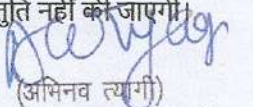 तुति नहीं की जाएगी।
(अभिनव त्यागी)